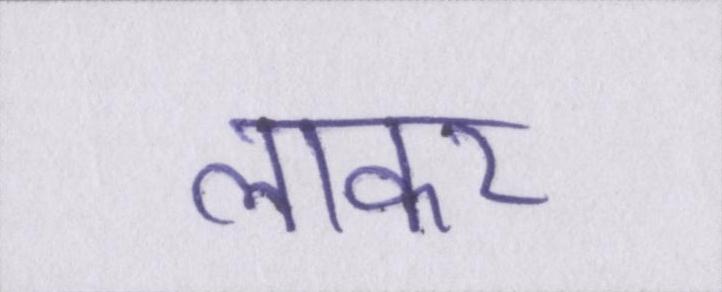 लाकर